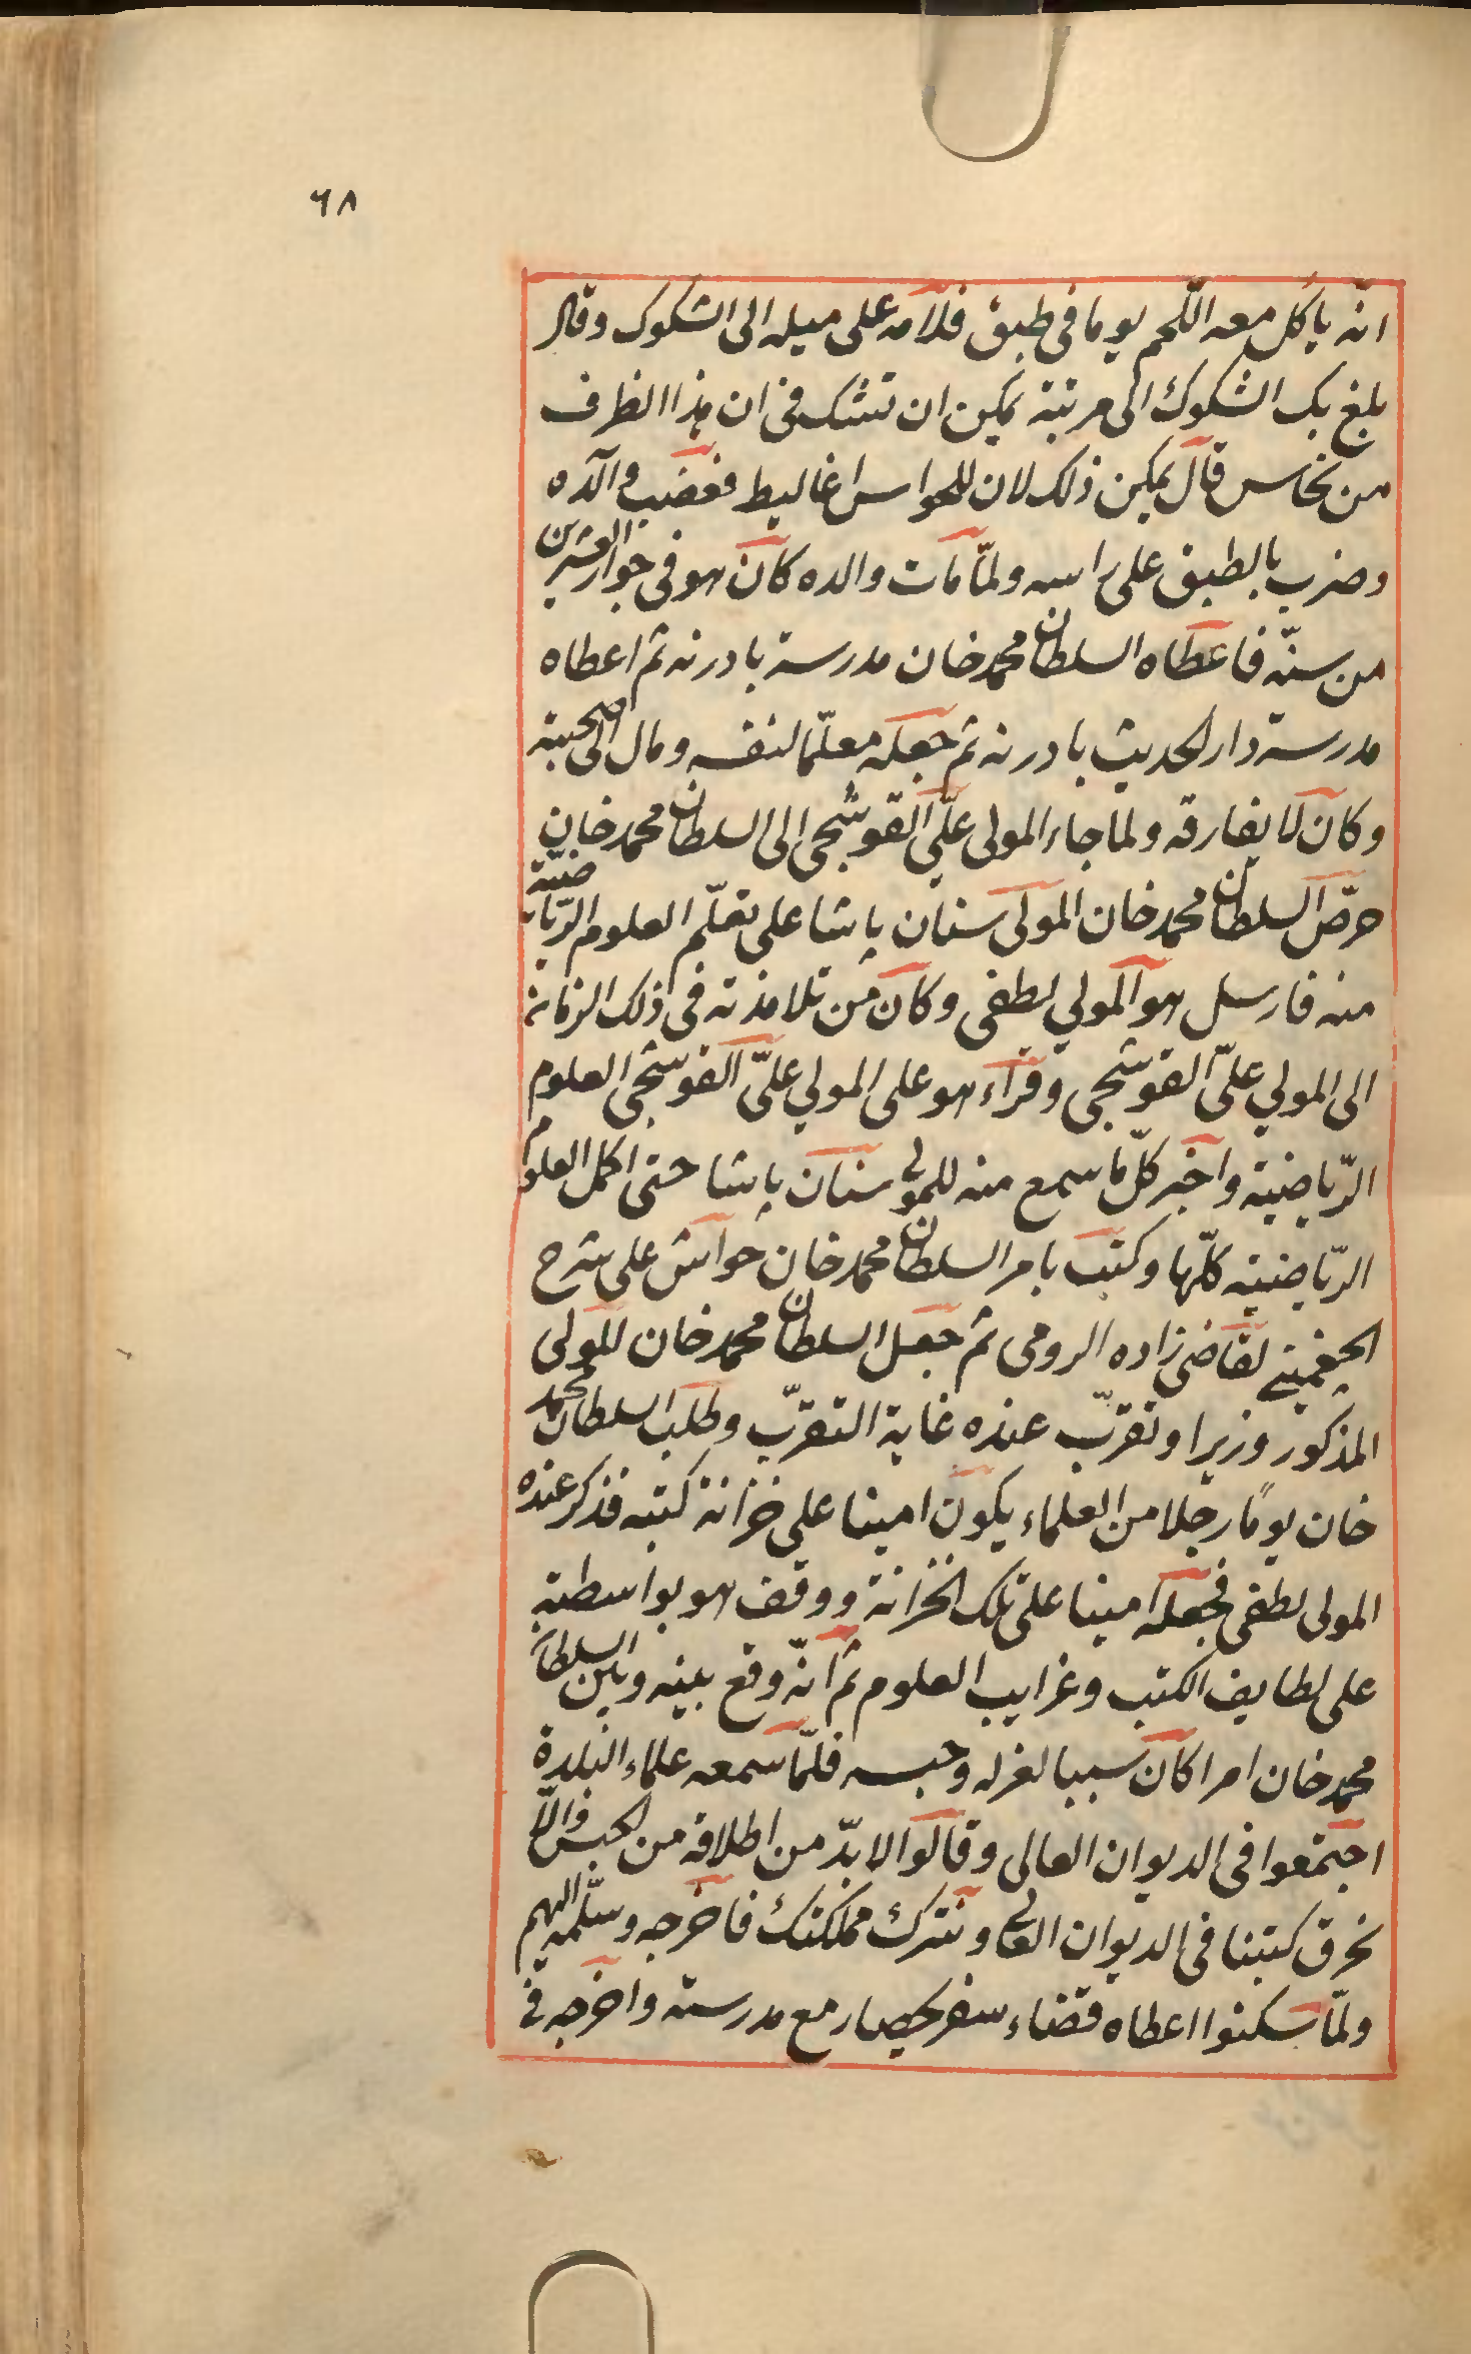 ٦٨
انّه ياكل معه اللّحم يوما فى طبق فلامه على ميله الى الشكوك وقال
بلغ بك الشكوك الى مرتبة يمكن ان تشك فى ان هذا الظرف
من نحاس قال يمكن ذلك لان للحواس اغاليط فغضب والده
وضرب بالطبق على راسه ولمّا مات والده كان هو فى جوار العشرين
من سنّه فاعطاه السلطان محمد خان مدرسة بادرنه ثم اعطاه
مدرسة دار الحديث بادرنه ثم جعله معلّما لنفسه ومال الى صحبته
وكان لا يفارقه ولما جاء المولى علّى القوشجى الى السلطان محمد خان
حرّض السلطان محمد خان المولى سنان پاشا على تعلّم العلوم الرّياضيّة
منه فارسل هو المولى لطفى وكان من تلامذته فى ذلك الزمان
الى المولي علىّ القوشجى وقراء هو على المولي علىّ القوشجى العلوم
الرّياضية واخبر كلّ ما سمع منه للمولى سنان پاشا حتى اكمل العلوم
الرّياضيّة كلّها وكتب بامر السلطان محمد خان حواش على شرح
الجغمينى لقاضى زاده الرومى ثم جعل السلطان محمد خان للمولى
المذكور وزيرا وتقرّب عنده غاية التقرّب وطلب السلطان محمد
خان يومًا رجلا من العلماء يكون امينا على خزانة كتبه فذكر عنده
المولى لطفى فجعله امينا على تلك الخزانة ووقف هو بواسطته
على لطايف الكتب وغرايب العلوم ثم انّه وقع بينه وبين السلطان
محمد خان امرا كان سببا لعزله وحبسه فلمّا سمعه علماء البلدة
اجتمعوا فى الديوان العالى وقالوا لا بدّ من اطلاقه من الحبس والّا
نحرق كتبنا فى الديوان العالى ونترك مملكتك فاخرجه وسلّمه اليهم
ولمّا سكنوا اعطاه قضاء سفر يحصار مع مدرسته واخرجه فى